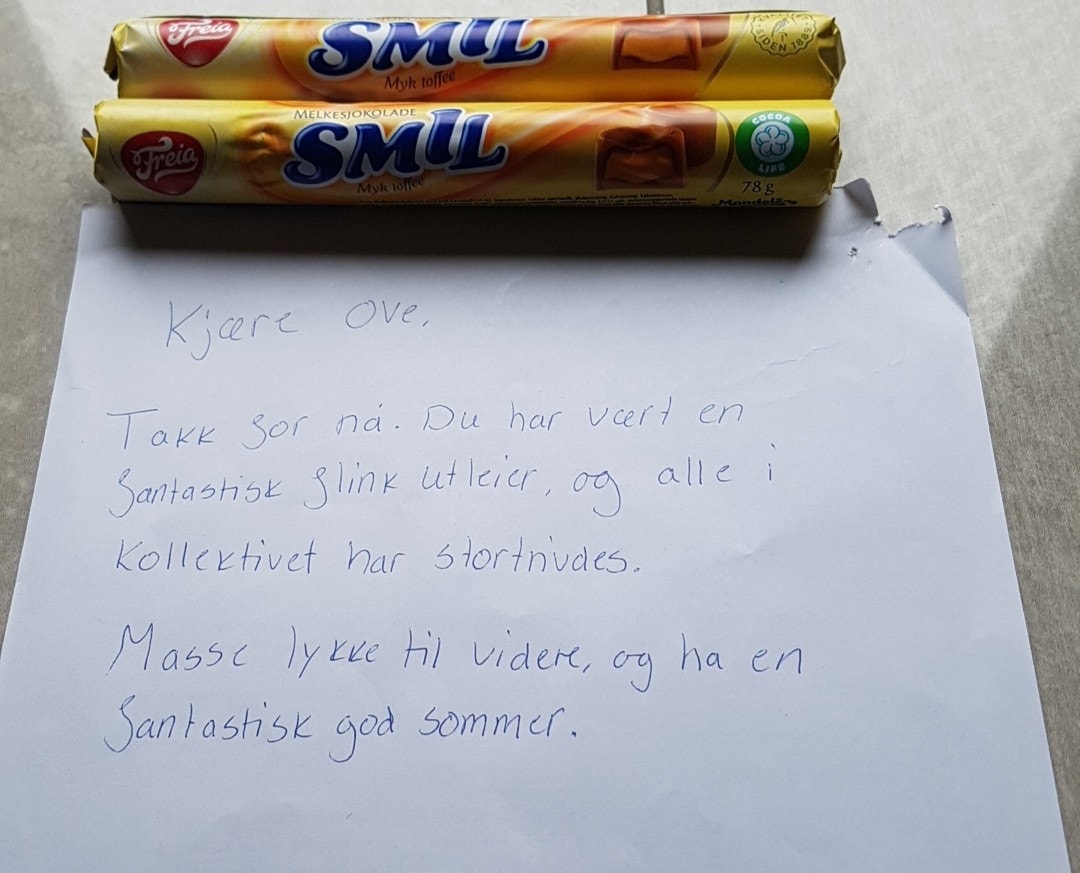 Freia
SMIL
Myk toffee
SIDEN 1889
MELKESJOKOLADE
Freia
SMIL
Myk toffee
COCOA
LIFE
78 g
Mondelēz
Kjære Ove,
Takk for nå. Du har vært en
fantastisk flink utleier, og alle i
kollektivet har stortrivdes.
Masse lykke til videre, og ha en
fantastisk god sommer.